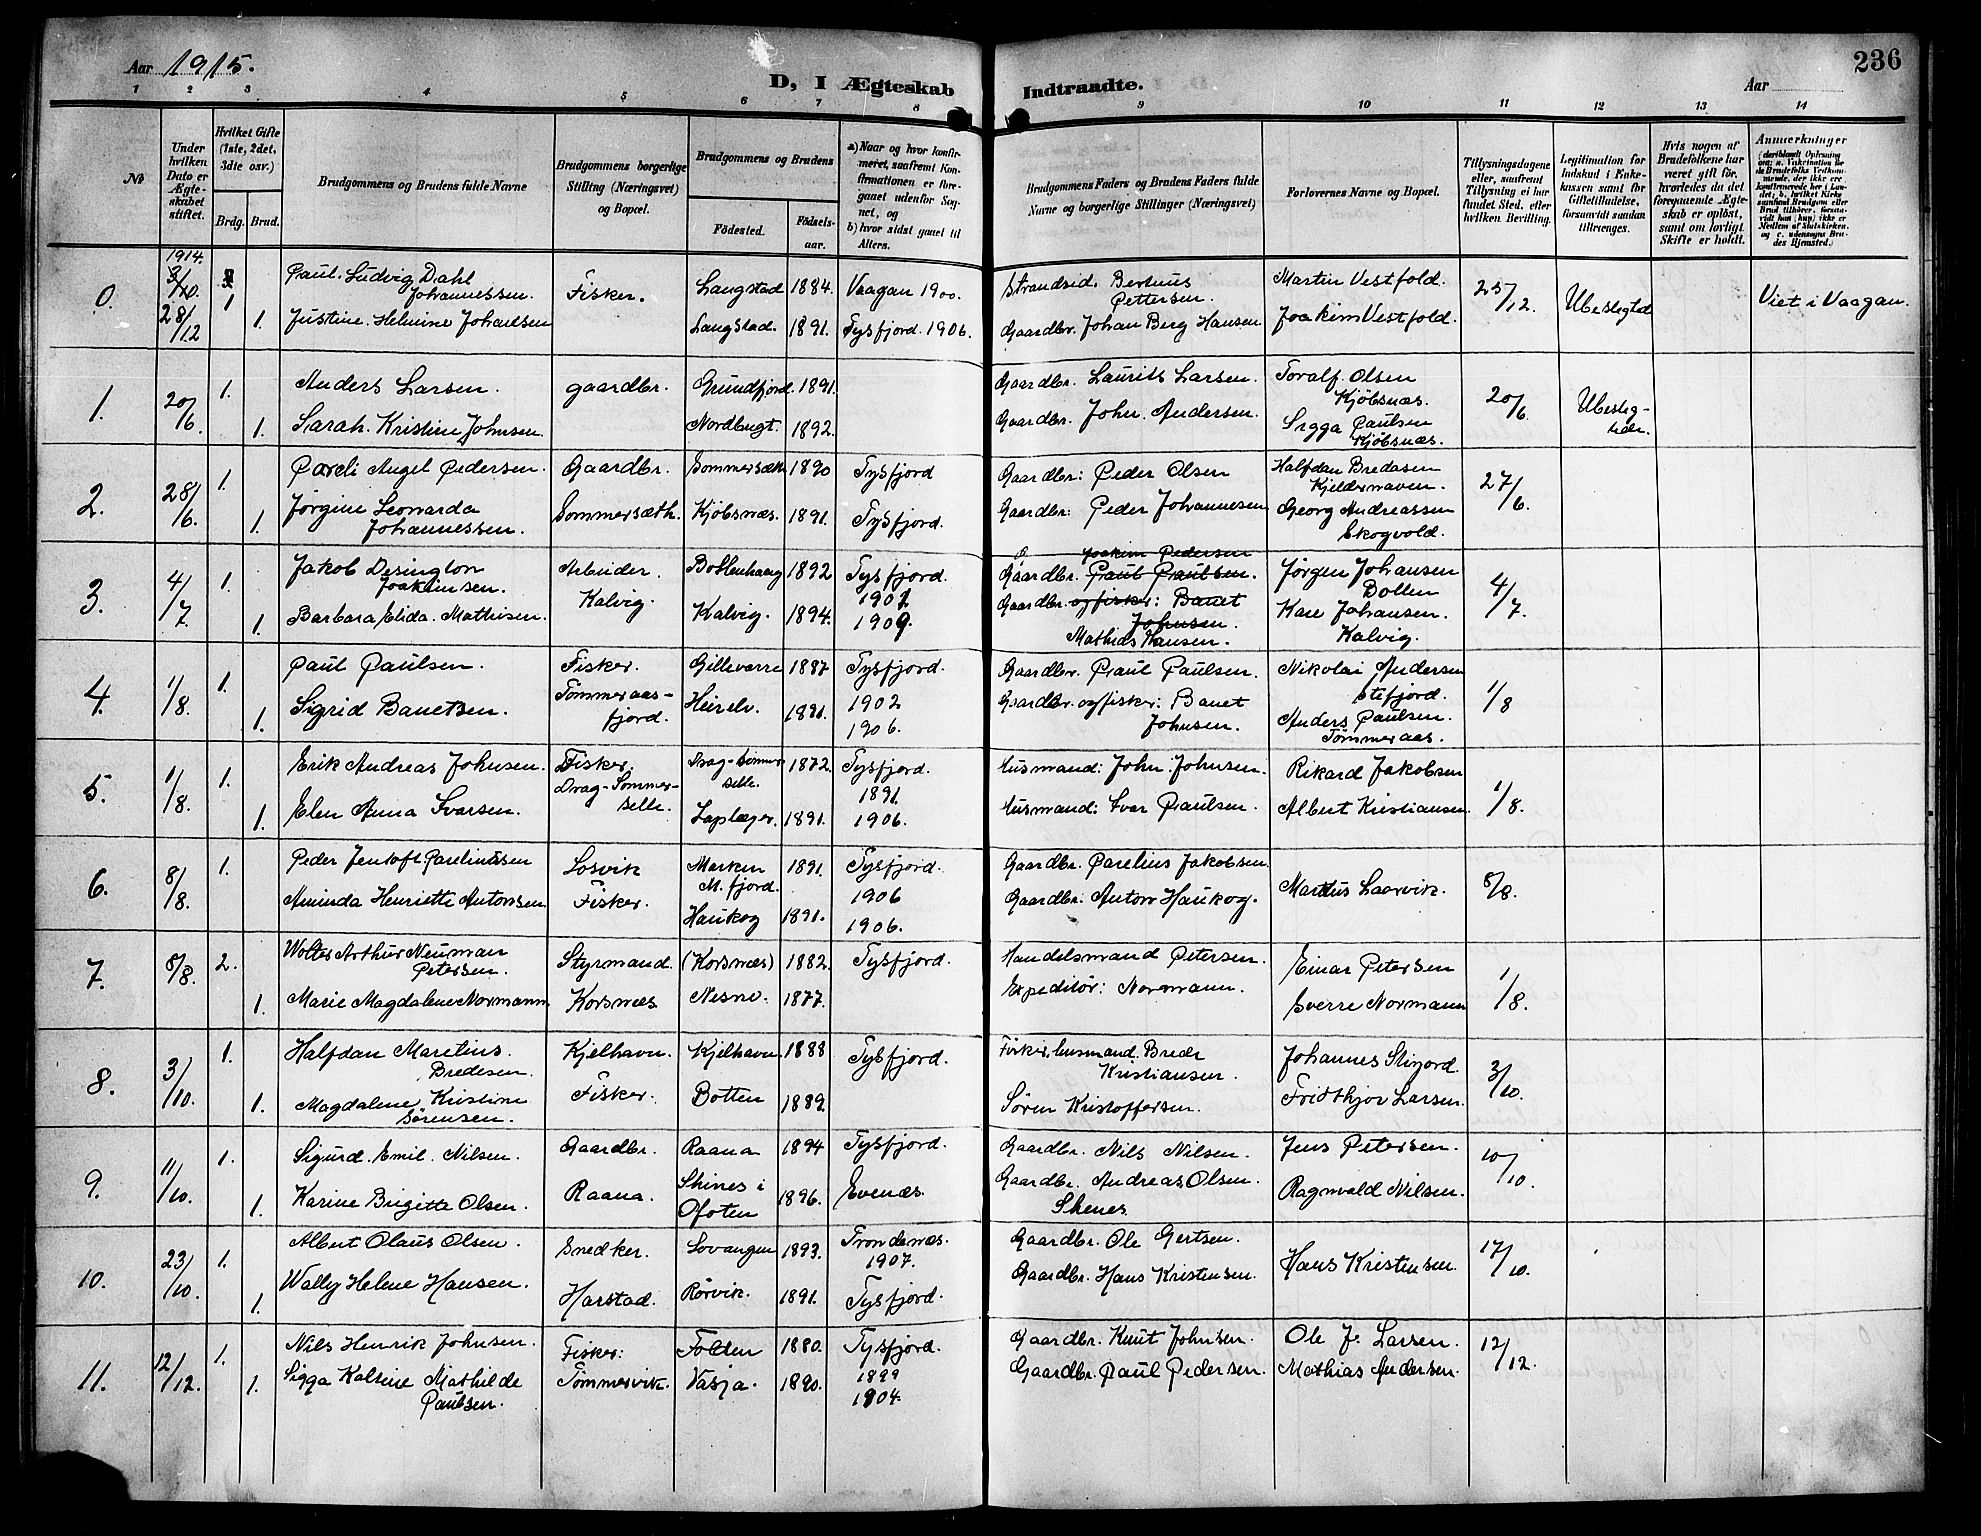 Aar 1915.
D, I Ægteskab
Indtraadte.
Aar
236
1 2 3 4 5 6 7 8 9 10 11 12 13 14
No
Under hvilken Dato er Ægteskabet stiftet.
Hvilket Gifte (1ste, 2det, 3dte osv.)
Brdg. Brud.
Brudgommens og Brudens fulde Navne
Brudgommens borgerlige Stilling (Næringsvei) og Bopæl.
Brudgommens og Brudens
Födested.
Födselsaar.
a) Naar og hvor konfirmeret, saafremt Konfirmationen er foregaaet udenfor Sognet, og
b) hvor sidst gaaet til Alters.
Brudgommens Faders og Brudens Faders fulde Navne og borgerlige Stillinger (Næringsvei)
Forlovernes Navne og Bopæl.
Tillysningsdagene eller, saafremt Tillysning ei har fundet Sted, efter hvilken Bevilling.
Legitimation for Indskud i Enkekassen samt for Giftetilladelse, forsaavidt saadan tiltrænges.
Hvis nogen af Brudefolkene har veret gift för, hvorledes da det foregaaende Ægteskab er oplöst, samt om lovligt Skifte er holdt.
Anmærkninger
0. 1914. 3/10. 28/12 1 Paul Ludvig Dahl Johannessen. Fisker. Langstad 1884. Vaagan 1900. Strandsid. Bertinus Pettersen. Martin Vestfold. 25/12. Ubeslegted Viet i Vaagan.
1. Justine Helmine Johansen Langstad. 1891. Tysfjord. 1906. Gaardbr. Johan Berg Hansen Joakim Vestfold.
1. 20/6. 1. Anders Larsen. gaardbr. Grundfjord. 1891. Gaardbr. Laurits Larsen. Toralf Olsen Kjöbsnæs. 20/6 Ubeslegtede.
1. Sarah Kristine Johnsen. Nordbugt. 1892. Gaardbr. John Andersen. Sigga Paulsen Kjöbsnæs.
2. 28/6. 1. Pareli Angel Pedersen. Gaardbr. Sommersæth 1890 Tysfjord Gaardbr: Peder Olsen Halfdan Bredesen Kjeldernaven. 27/6.
1. Jørgine Leonarda Johannessen. Sommersæth. Kjöbsnæs. 1891. Tysfjord. Gaardbr: Peder Johannesen Georg Andreassen Skogvold.
3. 4/7 1. Jakob Desington Joakimsen. Arbeider. Bottenhaug 1892 Tysfjord. 1907 Joakim Pedersen Gaardbr. Paul Paulsen. Jørgen Johansen Botten 4/7.
1. Barbara Elida Mathisen. Kalvig. Kalvig. 1894. 1909. Gaardbr. og fisker: Banet Johnsen. Mathias Hansen. Kare Johansen. Kalvig.
4. 1/8. 1. Paul Paulsen. Fisker. Gillevarre 1887 Tysfjord. 1902 Gaardbr. Paul Paulsen. Nikolai Andersen Stefjord. 1/8
1. Sigrid Banetsen. Tømmeraasfjord. Heirelv. 1891. 1906. Gaardbr. og fisker: Banet Johnsen. Anders Paulsen. Tømmeraas.
5. 1/8. 1. Erik Andreas Johnsen. Fisker. Drag-Sommersette. 1872. Tysfjord. 1891. Husmand: John Johnsen. Rikard Jakobsen 1/8.
1. Elen Anna Ivarsen. Drag-Sommersette. Laplæger. 1891. 1906. Husmand: Ivar Paulsen. Albert Kristiansen
6. 8/8. 1. Peder Jentoft Parelintsen Losvik Marken M. fjord. 1891. Tysfjord. 1906 Gaardbr. Parelius Jakobsen. 8/8.
Aminda Henriette Antonsen Fisker. Haukog 1891. 1906. Gaardbr: Anton Haukog. Martius Laarvik.
7. 8/8. 2. Wolter Arthur Neuman Petersen. Styrmand. (Korsnæs) 1882. Tysfjord. Handelsmand Petersen. Einar Petersen 1/8.
1. Marie Magdalene Normann Korsnæs Nesne. 1877. Expeditör: Normann. Sverre Normann
8. 3/10. 1. Halfdan Marelius. Bredesen. Kjelhavn. Kjelhavn. 1888 Tysfjord. Fisker, husmand Brede Kristiansen. Johannes Stinjord. 3/10.
1. Magdalene Kristine Sørensen. Fisker. Botten 1889. Søren Kristoffersen. Fridthjov Larsen.
9. 11/10. 1. Sigurd Emil Nilsen. Gaardbr. Raana 1894 Tysfjord. Gaardbr. Nils Nilsen. Jens Petersen. 10/10.
1. Karine Birgitte Olsen. Raana. Skines i Ofoten 1896. Evenæs. Gaardbr. Andreas Olsen. Skenes Ragnvald Nilsen.
10. 23/10. 1. Albert Olaus Olsen. Snedker. Lovangen 1893. Trondenæs. 1907. Gaardbr. Ole Gertsen. Hans Kristensen. 17/10.
1. Wally Helene Hansen. Harstad. Rörvik. 1891. Tysfjord. Gaardbr. Hans Kristensen.
11. 12/12. 1. Nils Henrik Johnsen. Fisker: Folden 1880. Tysfjord. 1899 Gaardbr. Knut Johnsen. Ole J. Larsen. 12/12.
1. Sigga Kalsine Mathilde Paulsen. Tømmervik. Vasja. 1890. 1904. Gaardbr. Paul Pedersen. Mathias Andersen.